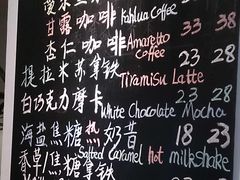 甘露咖啡 Kahlua Coffee 33 38
杏仁咖啡 Amaretto Coffee 23 28
提拉米苏拿铁 Tiramisu Latte
白巧克力摩卡 White Chocolate Mocha 23 28
海盐焦糖热奶昔 Salted Caramel hot milkshake 18 23
香草/焦糖拿铁